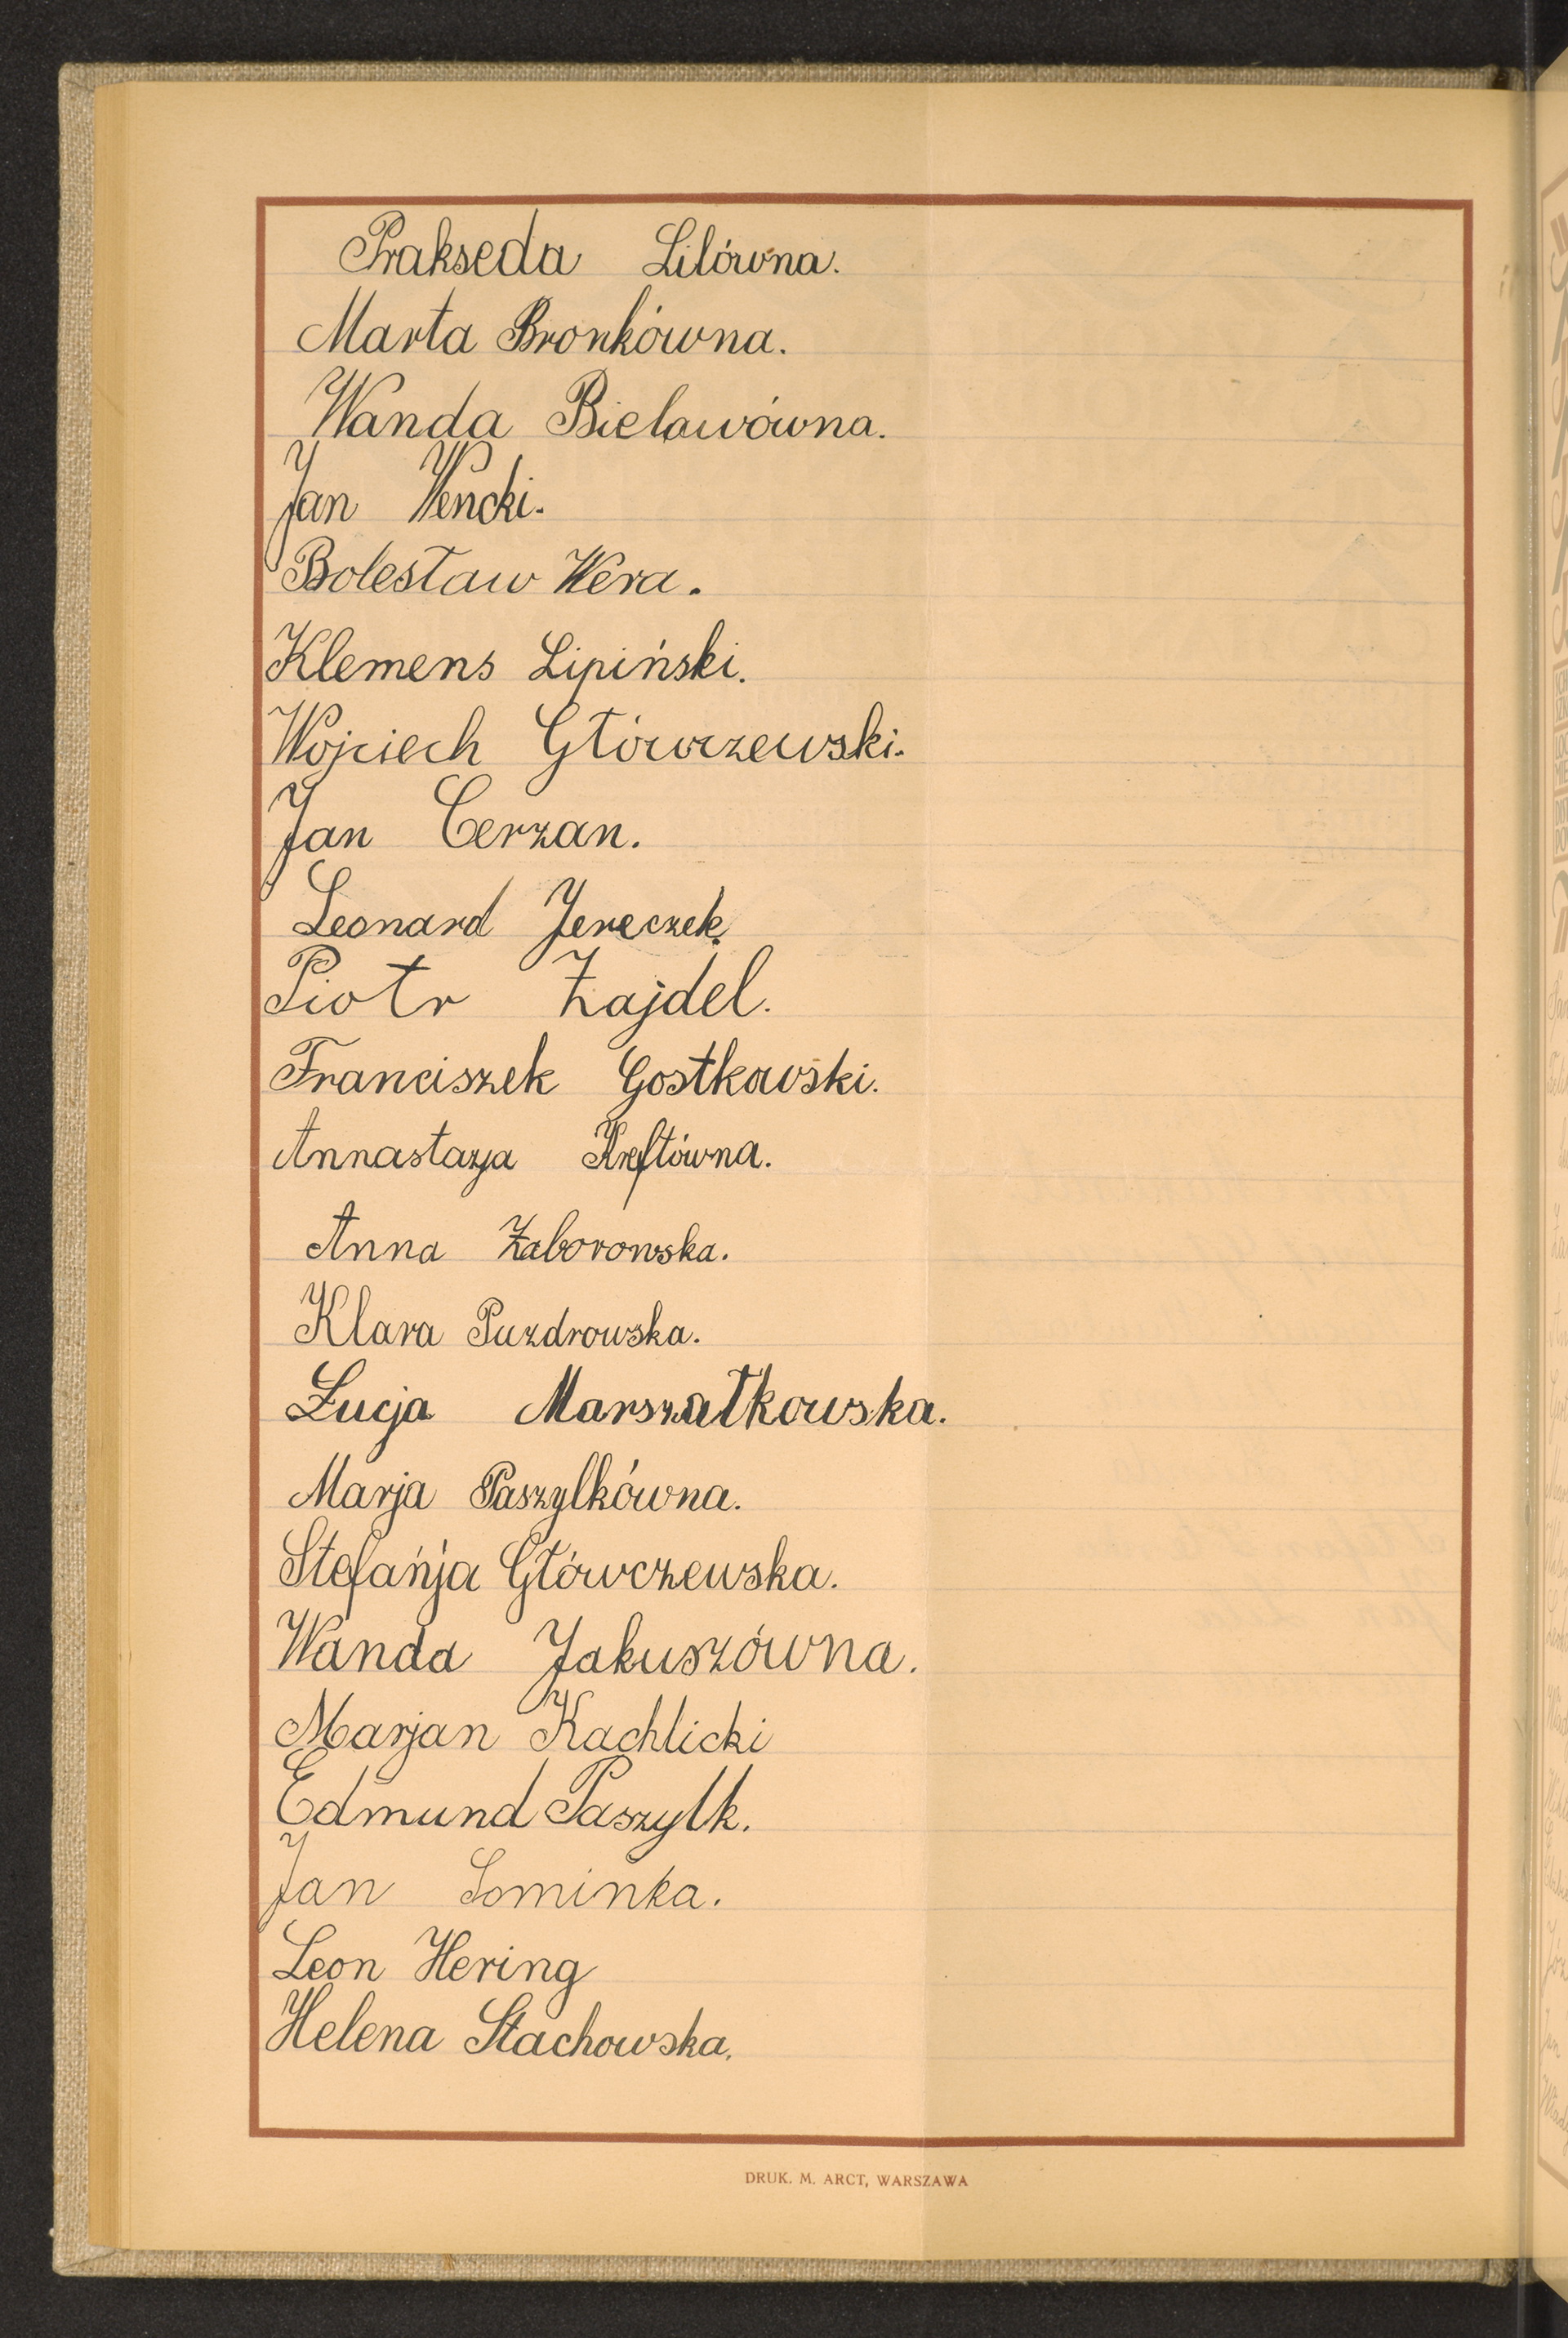 Prakseda Lilówna.
Marta Bronkówna.
Wanda Bielawówna.
Jan Wencki.
Bolesław Wera.
Klemens Lipiński.
Wojciech Główczewski.
Jan Cerzan.
Leonard Jereczek.
Piotr Zajdel.
Franciszek Gostkowski.
Annastazja Kreftówna.
Anna Zaborowska.
Klara Puzdrowska.
Łucja Marszałkowska.
Marja Paszylkówna.
Stefańja Główczewska.
Wanda Jakuszówna.
Marjan Kachlicki
Edmund Paszylk.
Jan Sominka.
Leon Hering
Helena Stachowska.
DRUK. M. ARCT, WARSZAWA